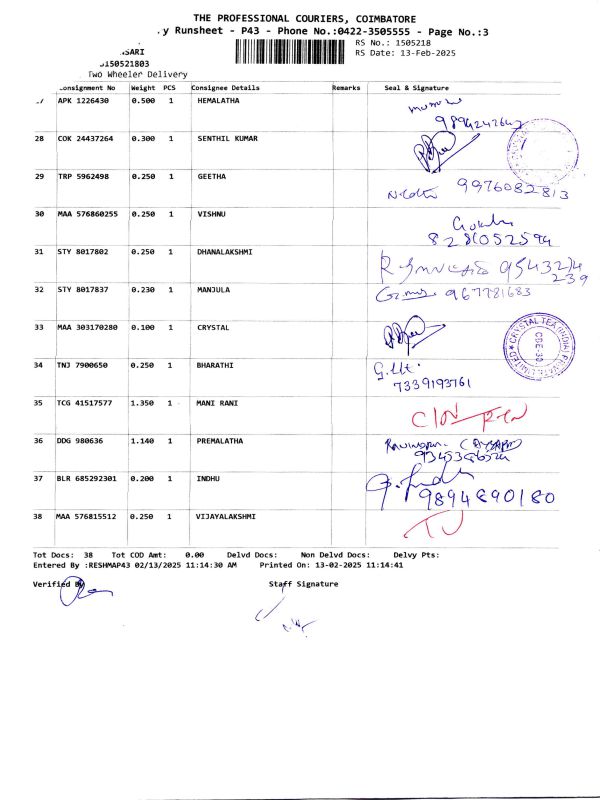 THE PROFESSIONAL COURIERS, COIMBATORE
y Runsheet - P43 - Phone No.:0422-3505555 - Page No.:3
SARI
RS No.: 1505218
150521803
RS Date: 13-Feb-2025
Two Wheeler Delivery
Consignment No Weight PCS Consignee Details Remarks Seal & Signature
APK 1226430 0.500 1 HEMALATHA
28 COK 24437264 0.300 1 SENTHIL KUMAR
29 TRP 5962498 0.250 1 GEETHA 9976082813
30 MAA 576860255 0.250 1 VISHNU
31 STY 8017802 0.250 1 DHANALAKSHMI 9543274
239
32 STY 8017837 0.230 1 MANJULA 9677781683
33 MAA 303170280 0.100 1 CRYSTAL
CRYSTAL TEA (INDIA) PRIVATE LIMITED
CBE-30
34 TNJ 7900650 0.250 1 BHARATHI
7339193761
35 TCG 41517577 1.350 1 MANI RANI
36 DDG 980636 1.140 1 PREMALATHA
37 BLR 685292301 0.200 1 INDHU
9894890180
38 MAA 576815512 0.250 1 VIJAYALAKSHMI
Tot Docs: 38 Tot COD Amt: 0.00 Delvd Docs: Non Delvd Docs: Delvy Pts:
Entered By :RESHMAP43 02/13/2025 11:14:30 AM Printed On: 13-02-2025 11:14:41
Verified By Staff Signature